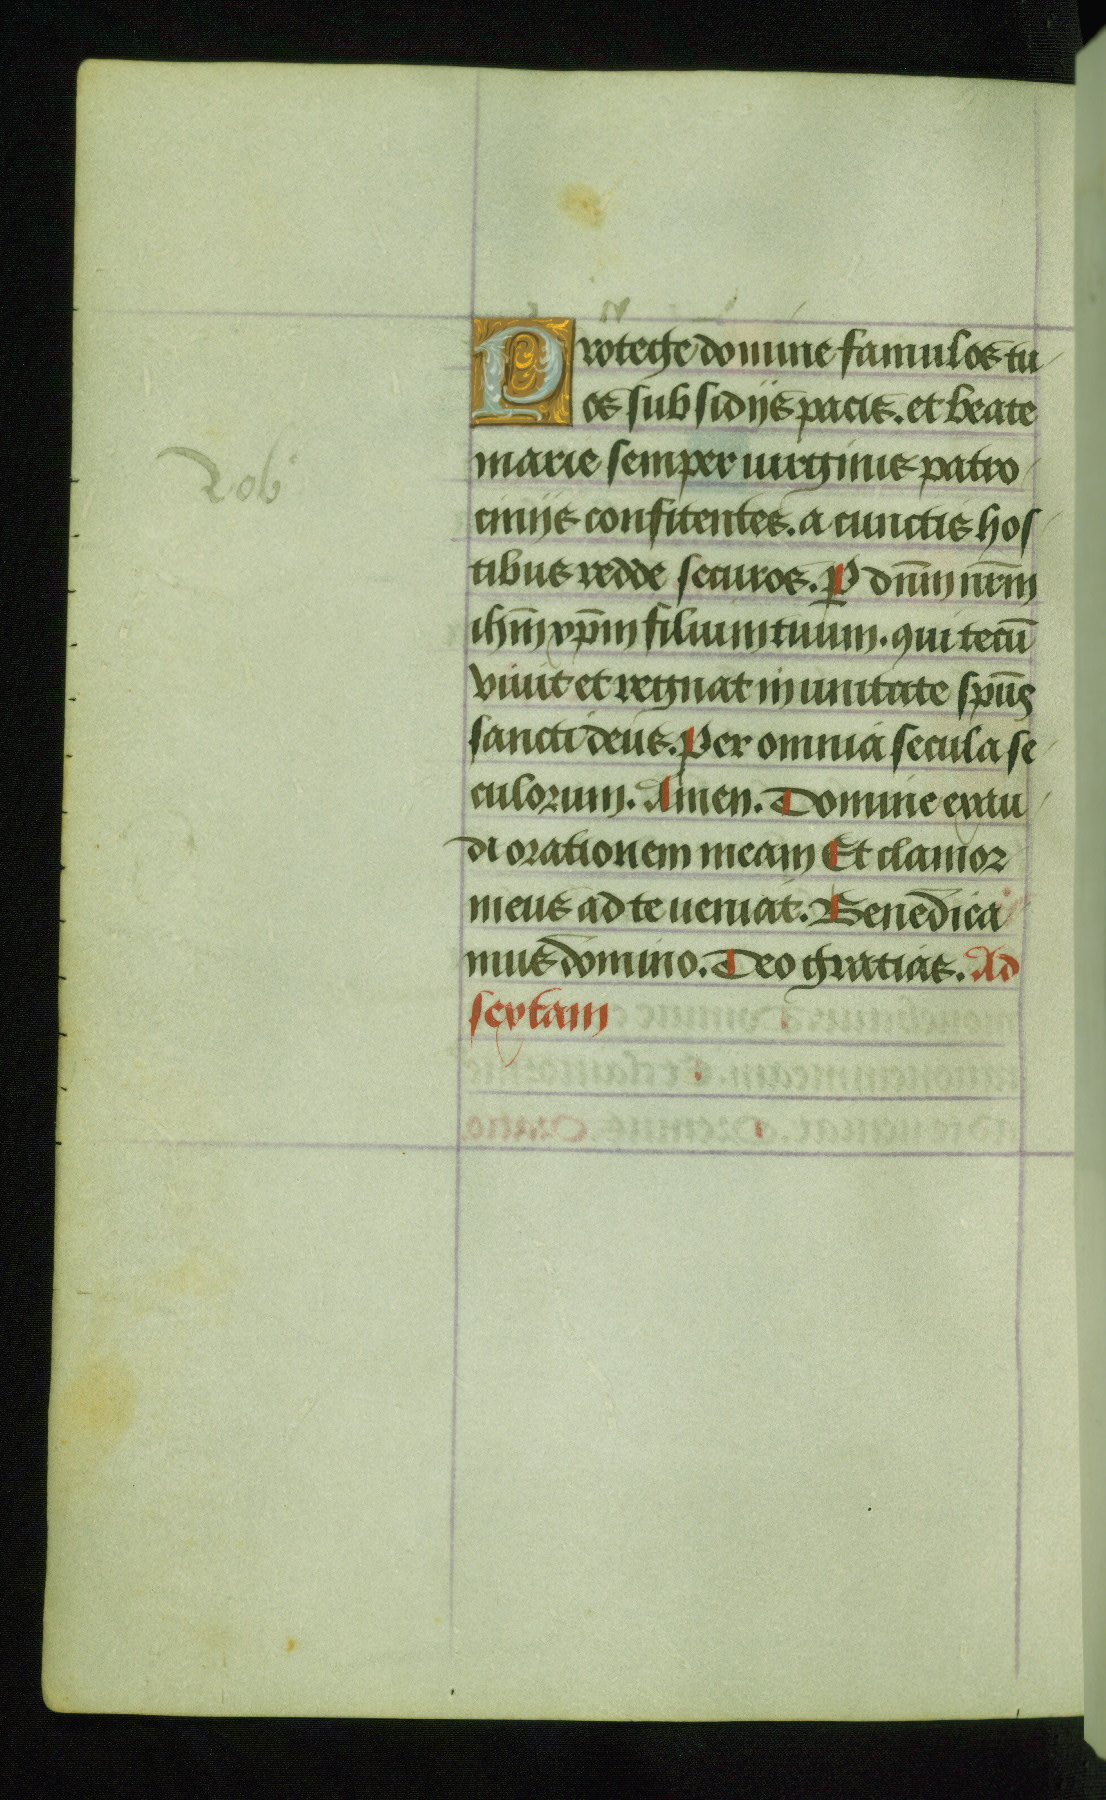 Protege domine famulos tu
os subsidijs pacis. et beate
marie semper uirginis patro
cinijs confitentes. a cunctis hos
tibus redde securos. P dn̄m nr̄m
ihm̄ xp̄m filium tuum. qui tecū
viuit et regnat in unitate sp̄us
sancti deus. Per omnia secula se
culorum. Amen. Domine exau
di orationem meam Et clamor
meus ad te ueniat. Benedica
mus domino. Deo gratias. Ad
sextam